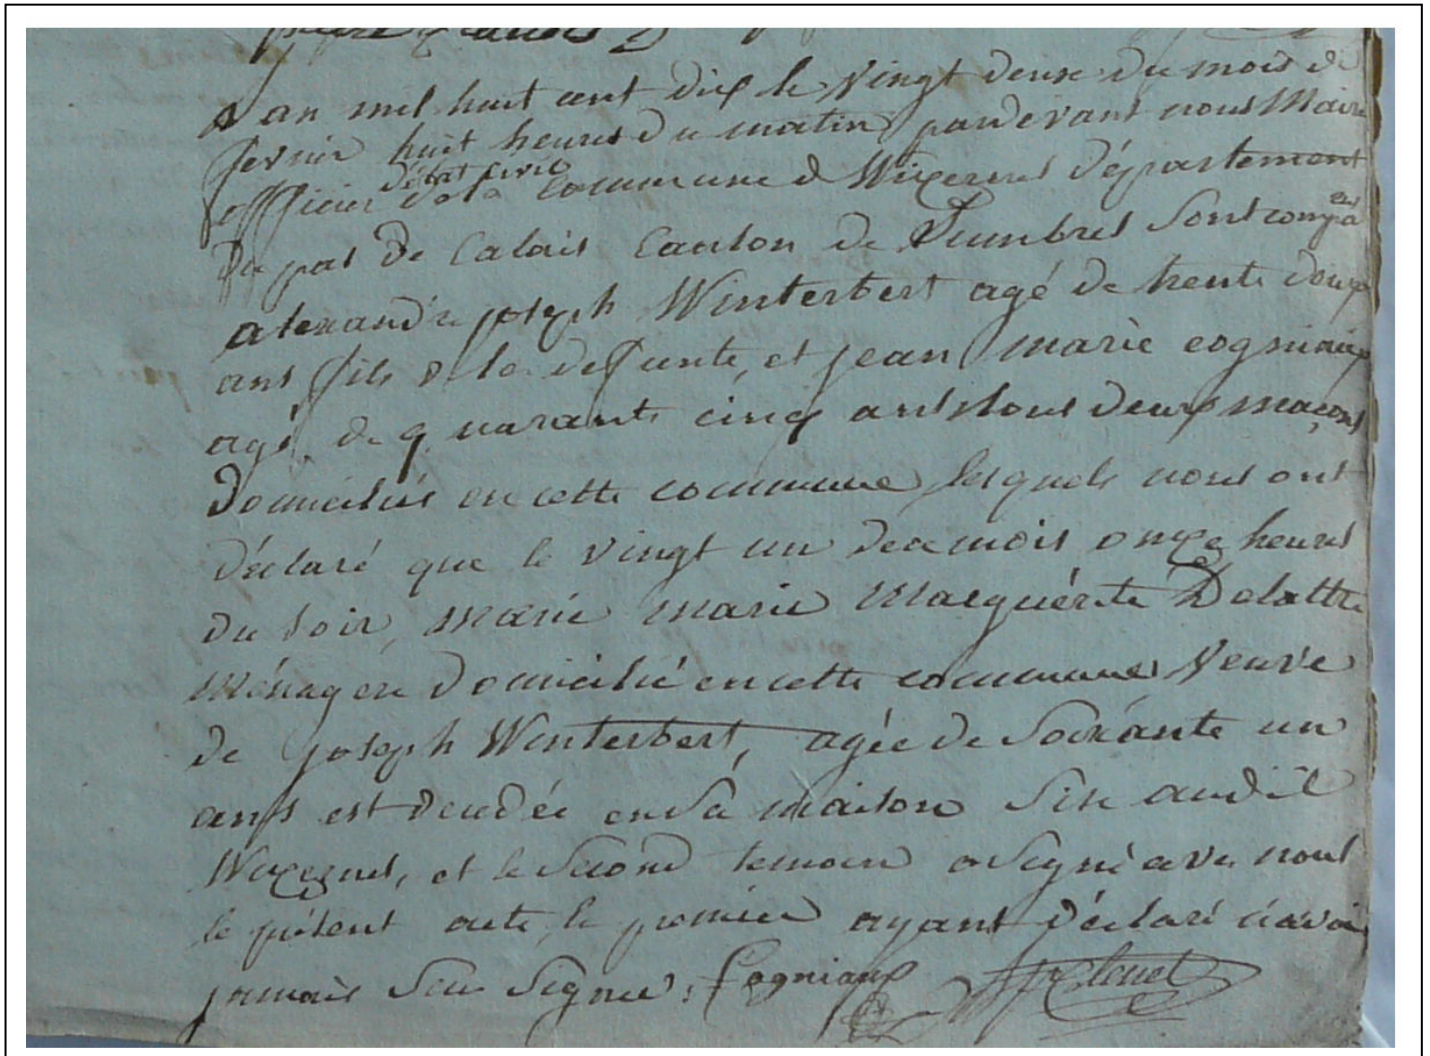 L'an mil huit cent dix le vingt deux du mois de
fevrier huit heures du matin pardevant nous Maire
officier détat civil dela commune d Wizernes département
du pas de Calais Canton de Lumbres sont comparus
alexandre joseph Winterbert agé de trente deux
ans fils de la defunte, et jean marie cogniaux
agé de quarante cinq ans tous deux maçons
domiciliés en cette commune lesquels nous ont
déclaré que le vingt un de ce mois onze heures
du soir, marie marie Marguérite Delattre
ménagere domicilié en cette commune Veuve
de joseph Winterbert, agée de Soixante un
ans est décédée en sa maison Sise audit
Wizernes, et le Second temoin a Signé avec nous
le présent acte, le premier ayant déclaré n'avoir
jamais Seu Signer. Cogniaux